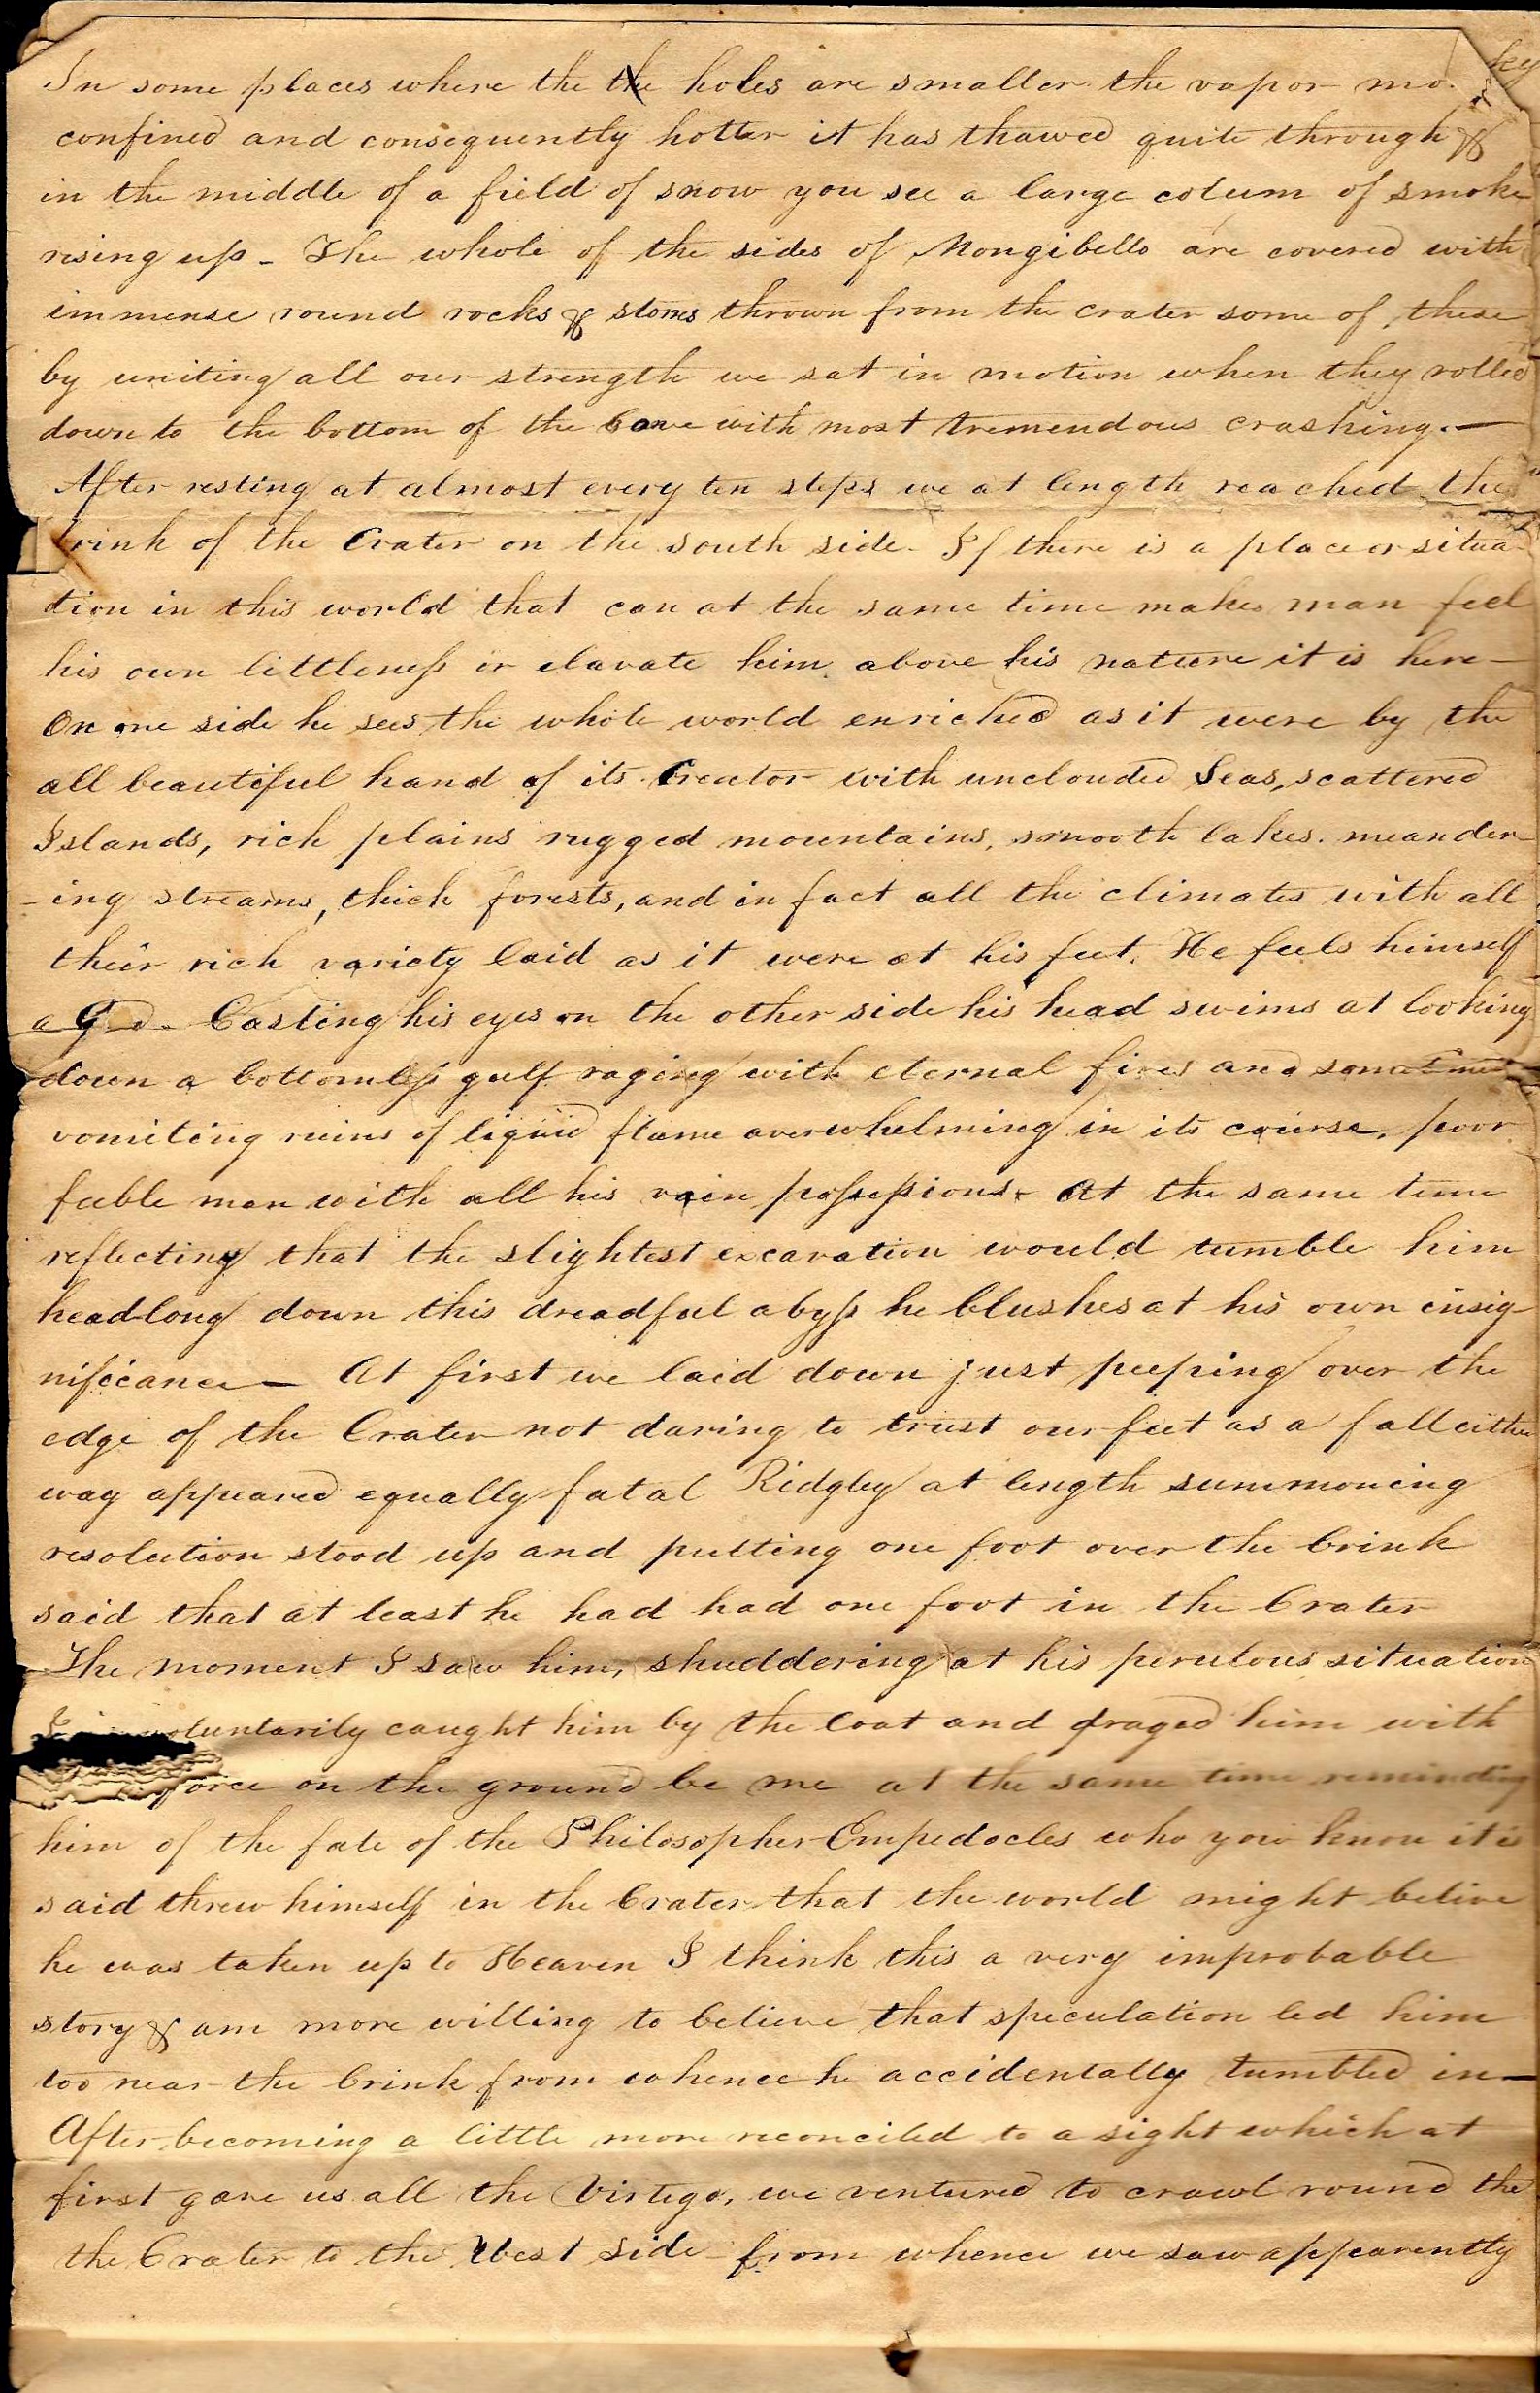 In some places where the the holes are smaller the vapor mo
confined and consequently hotter it has thawed quite through &
in the middle of a field of snow you see a large colum of smoke
rising up - The whole of the sides of Mongibello are covered with
immense round rocks & stones thrown from the crater some of these
by uniting all our strength we sat in motion when they rolled
down to the bottom of the Cone with most tremendous crashing. —
After resting at almost every ten steps we at length reached the
brink of the Crater on the south side - If there is a place or situa-
tion in this world that can at the same time makes man feel
his own littleness or elavate him above his nature it is here —
On one side he sees the whole world enriched as it were by the
all beautiful hand of its Creator with unclouded Seas, scattered
Islands, rich plains rugged mountains, smooth lakes. meander-
-ing streams, thick forests, and in fact all the climates with all
their rich variety laid as it were at his feet. He feels himself
a God. Casting his eyes on the other side his head swims at looking
down a bottomless gulf raging with eternal fires and sometimes
vomiting ruins of liquid flame overwhelming in its course, poor
feeble man with all his vain possessions. At the same time
reflecting that the slightest excavation would tumble him
head-long down this dreadful abyss he blushes at his own insig-
nificance — At first we laid down just peeping over the
edge of the Crater not daring to trust our feet as a fall either
way appeared equally fatal Ridgley at length summoning
resolution stood up and putting one foot over the brink
said that at least he had had one foot in the Crater
The moment I saw him, shuddering at his perulous situation
I involuntarily caught him by the Coat and draged him with
force on the ground be me at the same time reminding
him of the fate of the Philosopher Empedocles who you know it is
said threw himself in the Crater that the world might belive
he was taken up to Heaven I think this a very improbable
story & am more willing to believe that speculation led him
too near the brink from whence he accidentally tumbled in —
After becoming a little more reconciled to a sight which at
first gave us all the Virtego, we ventured to crawl round the
the Crater to the West Side from whence we saw apparently